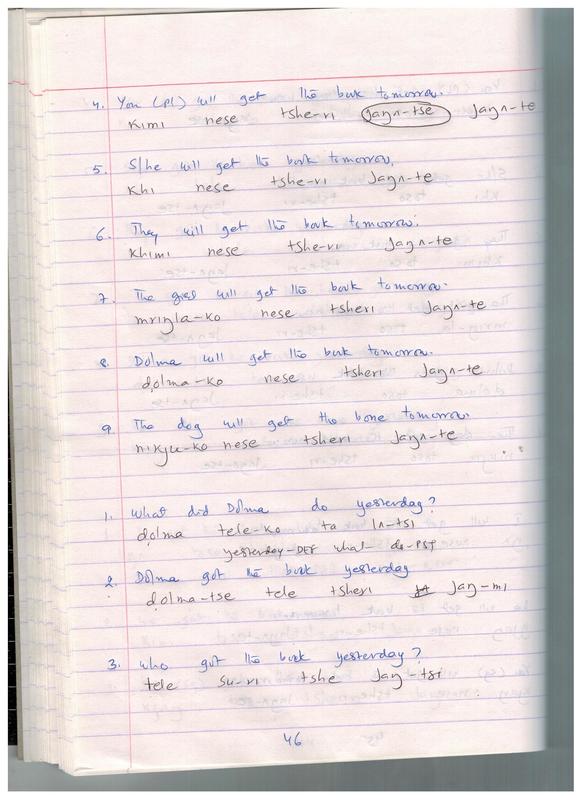 4. You (pl) will get the book tomorrow.
kimi nese tshe-ri jaŋʌ-tse jaŋʌ-te
5. S/he will get the book tomorrow.
khi nese tshe-ri jaŋʌ-te
6. They will get the book tomorrow.
khimi nese tshe-ri jaŋʌ-te
7. The girl will get the book tomorrow.
mriŋla-ko nese tsheri jaŋʌ-te
8. Dolma will get the book tomorrow.
ḍolma-ko nese tsheri jaŋʌ-te
9. The dog will get the bone tomorrow.
nikju-ko nese tsheri jaŋʌ-te
1. What did Dolma do yesterday?
ḍolma tele-ko ta lʌ-tsi
yesterday-DEF what do-PST
2. Dolma got the book yesterday
ḍolma-tse tele tsheri jaŋ-mi
3. Who got the book yesterday?
tele su-ri tshe jaŋ-tsi
46